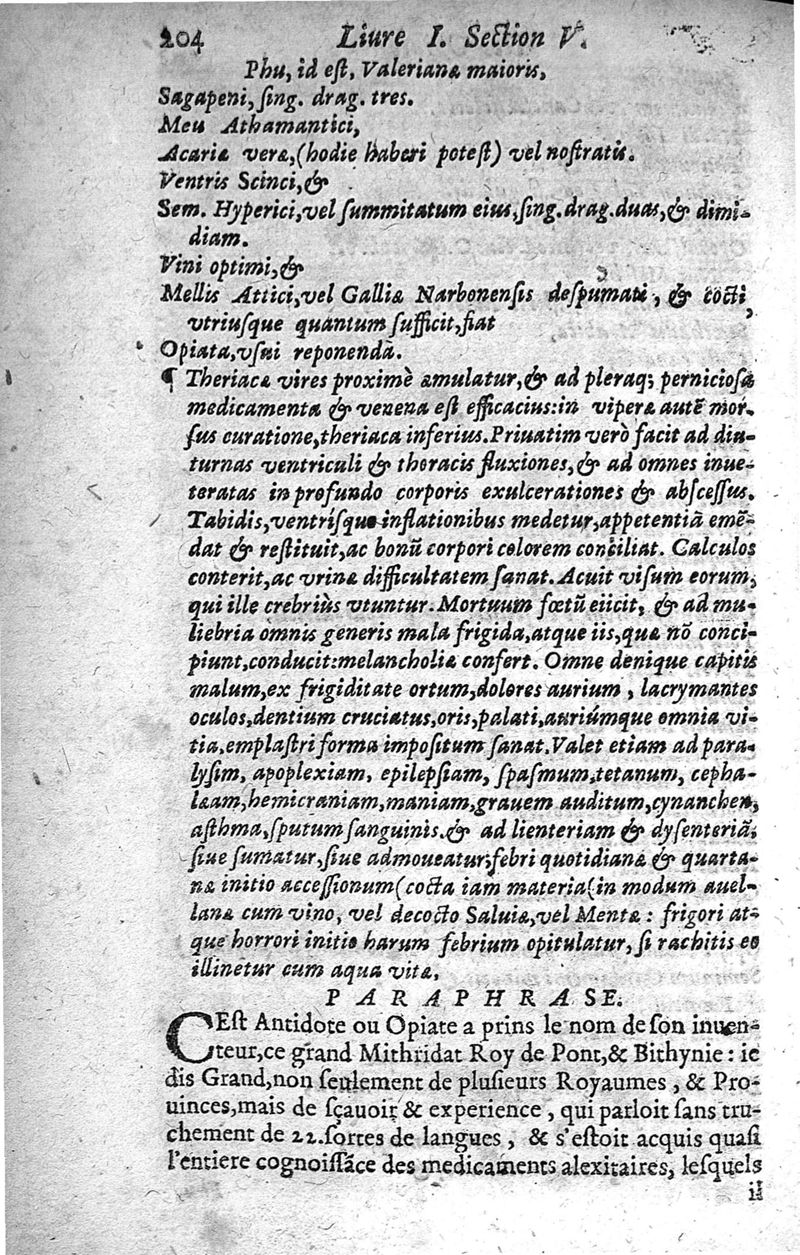 204 Liure I. Section V.
Phu, id est, Valerianæ maioris,
Sagapeni, sing. drag. tres.
Meu Athamantici,
Acariæ veræ, (hodie haberi potest) vel nostratis.
Ventris Scinci, &
Sem. Hyperici, vel summitatum eius, sing. drag. duas, & dimi-
diam.
Vini optimi, &
Mellis Attici, vel Galliæ Narbonensis despumati, & cocti,
vtriusque quantum sufficit, fiat
Opiata, vsui reponendā.
¶ Theriacæ vires proximè æmulatur, & ad pleraq; perniciosa
medicamenta & venena est efficacius: in viperæ autē mor-
sus curatione, theriaca inferius. Priuatim verò facit ad diu-
turnas ventriculi & thoracis fluxiones, & ad omnes inue-
teratas in profundo corporis exulcerationes & abscessus.
Tabidis, ventrisque inflationibus medetur, appetentiā emē-
dat & restituit, ac bonū corpori colorem conciliat. Calculos
conterit, ac vrinæ difficultatem sanat. Acuit visum eorum,
qui ille crebriùs vtuntur. Mortuum fœtū eiicit, & ad mu-
liebria omnis generis mala frigida, atque iis, quæ nō conci-
piunt, conducit: melancholiæ confert. Omne denique capitis
malum, ex frigiditate ortum, dolores aurium, lacrymantes
oculos, dentium cruciatus, oris, palati, auriúmque omnia vi-
tia, emplastri forma impositum sanat. Valet etiam ad para-
lysim, apoplexiam, epilepsiam, spasmum, tetanum, cepha-
læam, hemicraniam, maniam, grauem auditum, cynanchen,
asthma, sputum sanguinis. & ad lienteriam & dysenteriā,
siue sumatur, siue admoueatur; febri quotidianæ & quarta-
næ initio accessionum (cocta iam materia (in modum auel-
lanæ cum vino, vel decocto Saluiæ, vel Mentæ: frigori at-
que horrori initio harum febrium opitulatur, si rachitis eo
illinetur cum aqua vitæ,
PARAPHRASE.
CEst Antidote ou Opiate a prins le nom de son inuen-
teur, ce grand Mithridat Roy de Pont, & Bithynie: ie
dis Grand, non seulement de plusieurs Royaumes, & Pro-
uinces, mais de sçauoir & experience, qui parloit sans tru-
chement de 22. sortes de langues, & s'estoit acquis quasi
l'entiere cognoissāce des medicaments alexitaires, lesquels
il